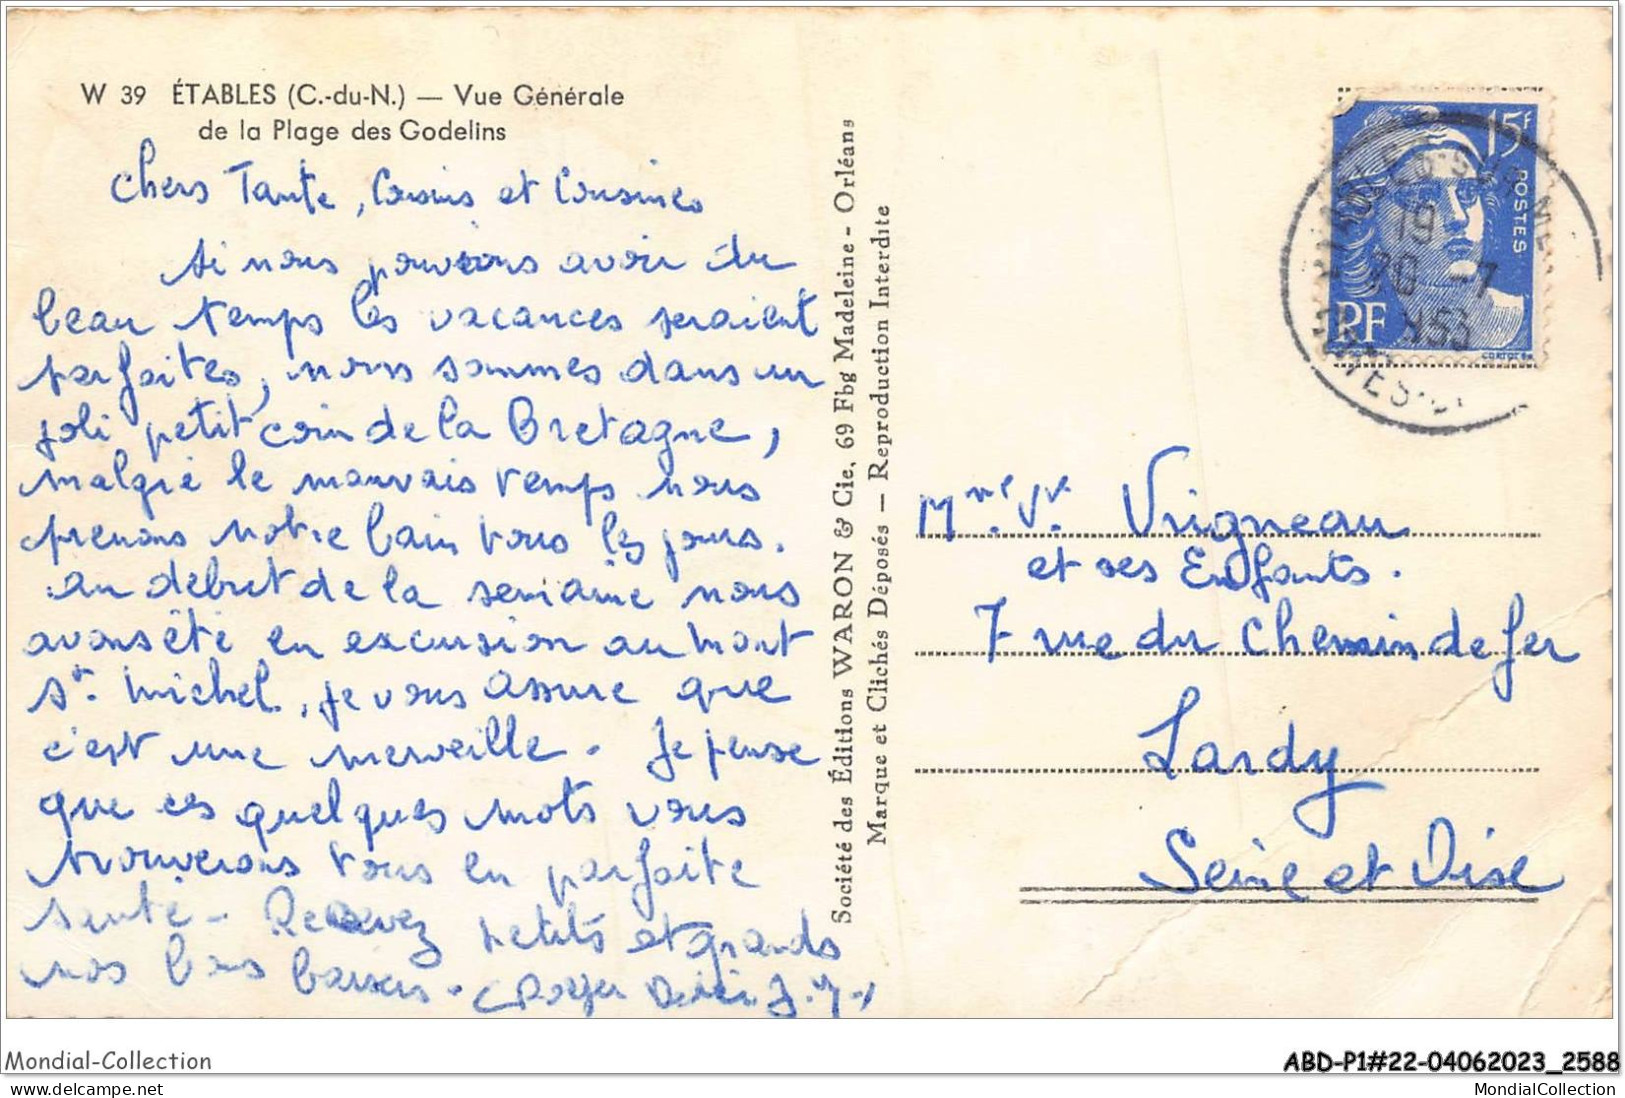 W 39 ÉTABLES (C.-du-N.) — Vue Générale
de la Plage des Godelins
Chers Tante, Cousins et Cousines
Si nous pouvions avoir du
beau temps les vacances seraient
parfaites, nous sommes dans un
joli petit coin de la Bretagne,
malgré le mauvais temps nous
prenons notre bain tous les jours.
au début de la semaine nous
avons été en excursion au Mont
St. Michel, je vous assure que
c'est une merveille. Je pense
que ces quelques mots vous
trouverons tous en parfaite
santé - Recevez petits et grands
nos bons baisers - Roger
Société des Éditions WARON & Cie, 69 Fbg Madeleine - Orléans
Marque et Clichés Déposés — Reproduction Interdite
15F
POSTES
RF
19
20 -7
Mme Ve Vrigneau
et ses Enfants.
7 rue du Chemin de fer
Lardy
Seine et Oise
Mondial-Collection
ABD-P1#22-04062023_2588
© delcampe.net
MondialCollection